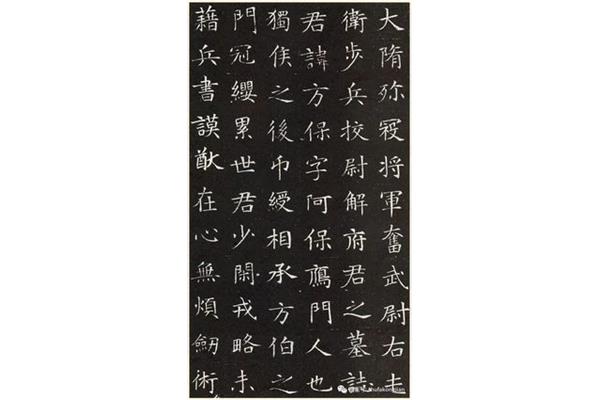 大隋殄寇将軍奮武尉右
衛步兵挍尉解府君之墓誌
君諱方保字阿保鴈門人也
獨侯之後帀綬相承方伯之
門冠纓累世君少閑戎略未
藉兵書謨猷在心無煩劒術
shufakongjian